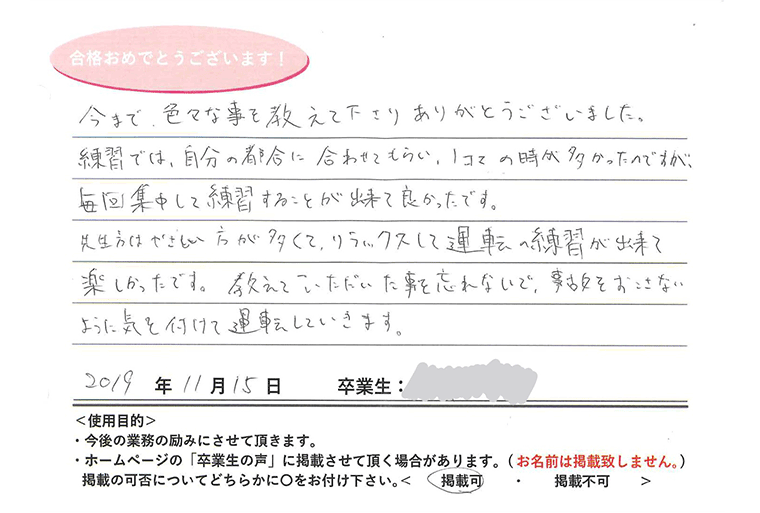 合格おめでとうございます！
今まで、色々な事を教えて下さりありがとうございました。
練習では、自分の都合に合わせてもらい、1コマの時が多かったのですが、
毎回集中して練習することが出来て良かったです。
先生方はやさしい方が多くて、リラックスして運転の練習が出来て
楽しかったです。教えていただいた事を忘れないで、事故をおこさない
ように気を付けて運転していきます。
2019 年 11 月 15 日 卒業生：
＜使用目的＞
・今後の業務の励みにさせて頂きます。
・ホームページの「卒業生の声」に掲載させて頂く場合があります。（お名前は掲載致しません。）
掲載の可否についてどちらかに〇をお付け下さい。＜ 掲載可 ・ 掲載不可 ＞